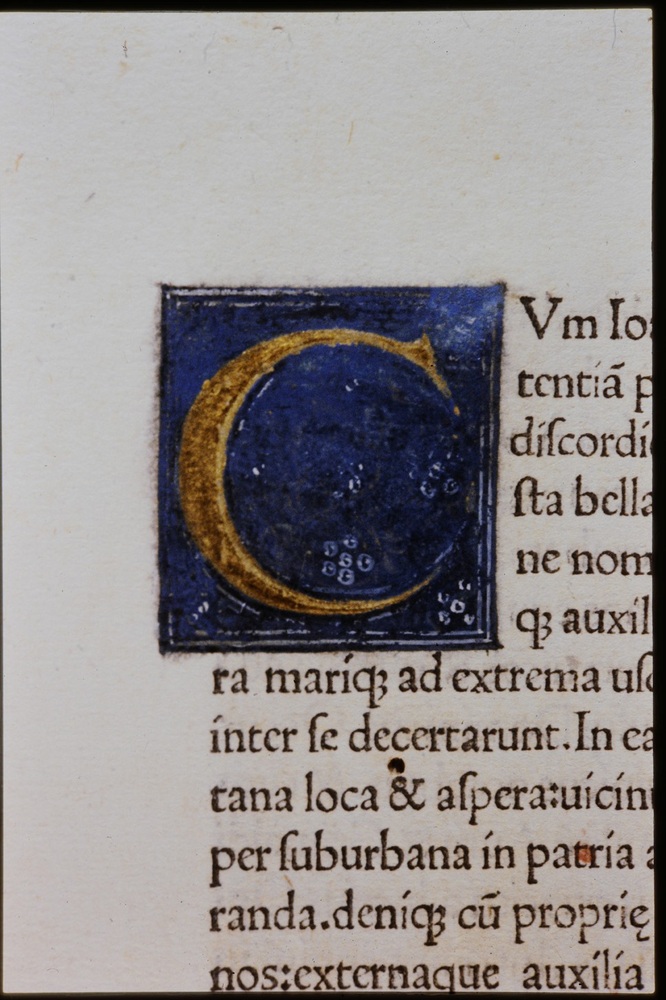 CVm Io
tentiã p
diſcordi
ſta bella
ne nom
qꝫ auxil
ra mariqꝫ ad extrema uſ
inter ſe decertarunt.In ea
tana loca & aſpera:uicin
per ſuburbana in patria a
randa.deniqꝫ cũ proprię
nos:externaque auxilia